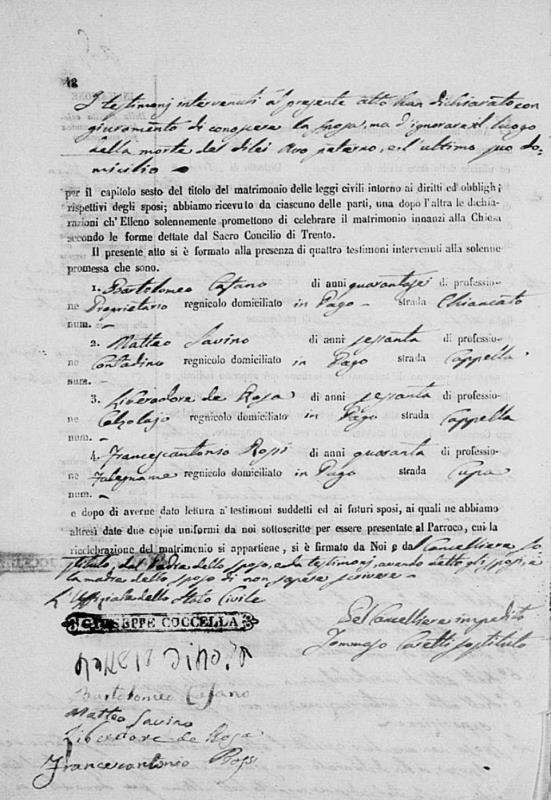 18
I testimonj intervenuti al presente atto han dichiarato con
giuramento di conoscere la sposa, ma d'ignorare il luogo
della morte del dilei Avo paterno, e l'ultimo suo do=
micilio =
per il capitolo sesto del titolo del matrimonio delle leggi civili intorno ai diritti ed obblighi
rispettivi degli sposi; abbiamo ricevuto da ciascuno delle parti, una dopo l'altra le dichia-
razioni ch' Elleno solennemente promettono di celebrare il matrimonio innanzi alla Chiesa
secondo le forme dettate dal Sacro Concilio di Trento.
Il presente atto si è formato alla presenza di quattro testimoni intervenuti alla solenne
promessa che sono.
1. Bartolomeo Cafano di anni quarantasei di professio-
ne Proprietario regnicolo domiciliato in Pago strada Chiancato
num. –
2. Matteo Savino di anni sessanta di professio-
ne Contadino regnicolo domiciliato in Pago strada Cappella
num. –
3. Liberadore de Rosa di anni sessanta di professio-
ne Calzolajo regnicolo domiciliato in Pago strada Cappella
num. –
4. Francescantonio Rossi di anni quaranta di professio-
ne Falegname regnicolo domiciliato in Pago strada Cupa
num. –
e dopo di averne dato lettura a' testimoni suddetti ed ai futuri sposi, ai quali ne abbiamo
altresì date due copie uniformi da noi sottoscritte per essere presentate al Parroco, cui la
ricelebrazione del matrimonio si appartiene, si è firmato da Noi e dal Cancelliere so
stituto, dal Padre dello sposo, e da testimonj, avendo detto gli sposi, e
la madre dello sposo di non sapere scrivere =
L'Uffiziale dello Stato Civile
GIUSEPPE COCCELLA
Pel Cancelliere impedito
Tommaso Coretti sostituto
Bartolomeo Cafano
Matteo Savino
Liberadore de Rosa
Francescantonio Rossi